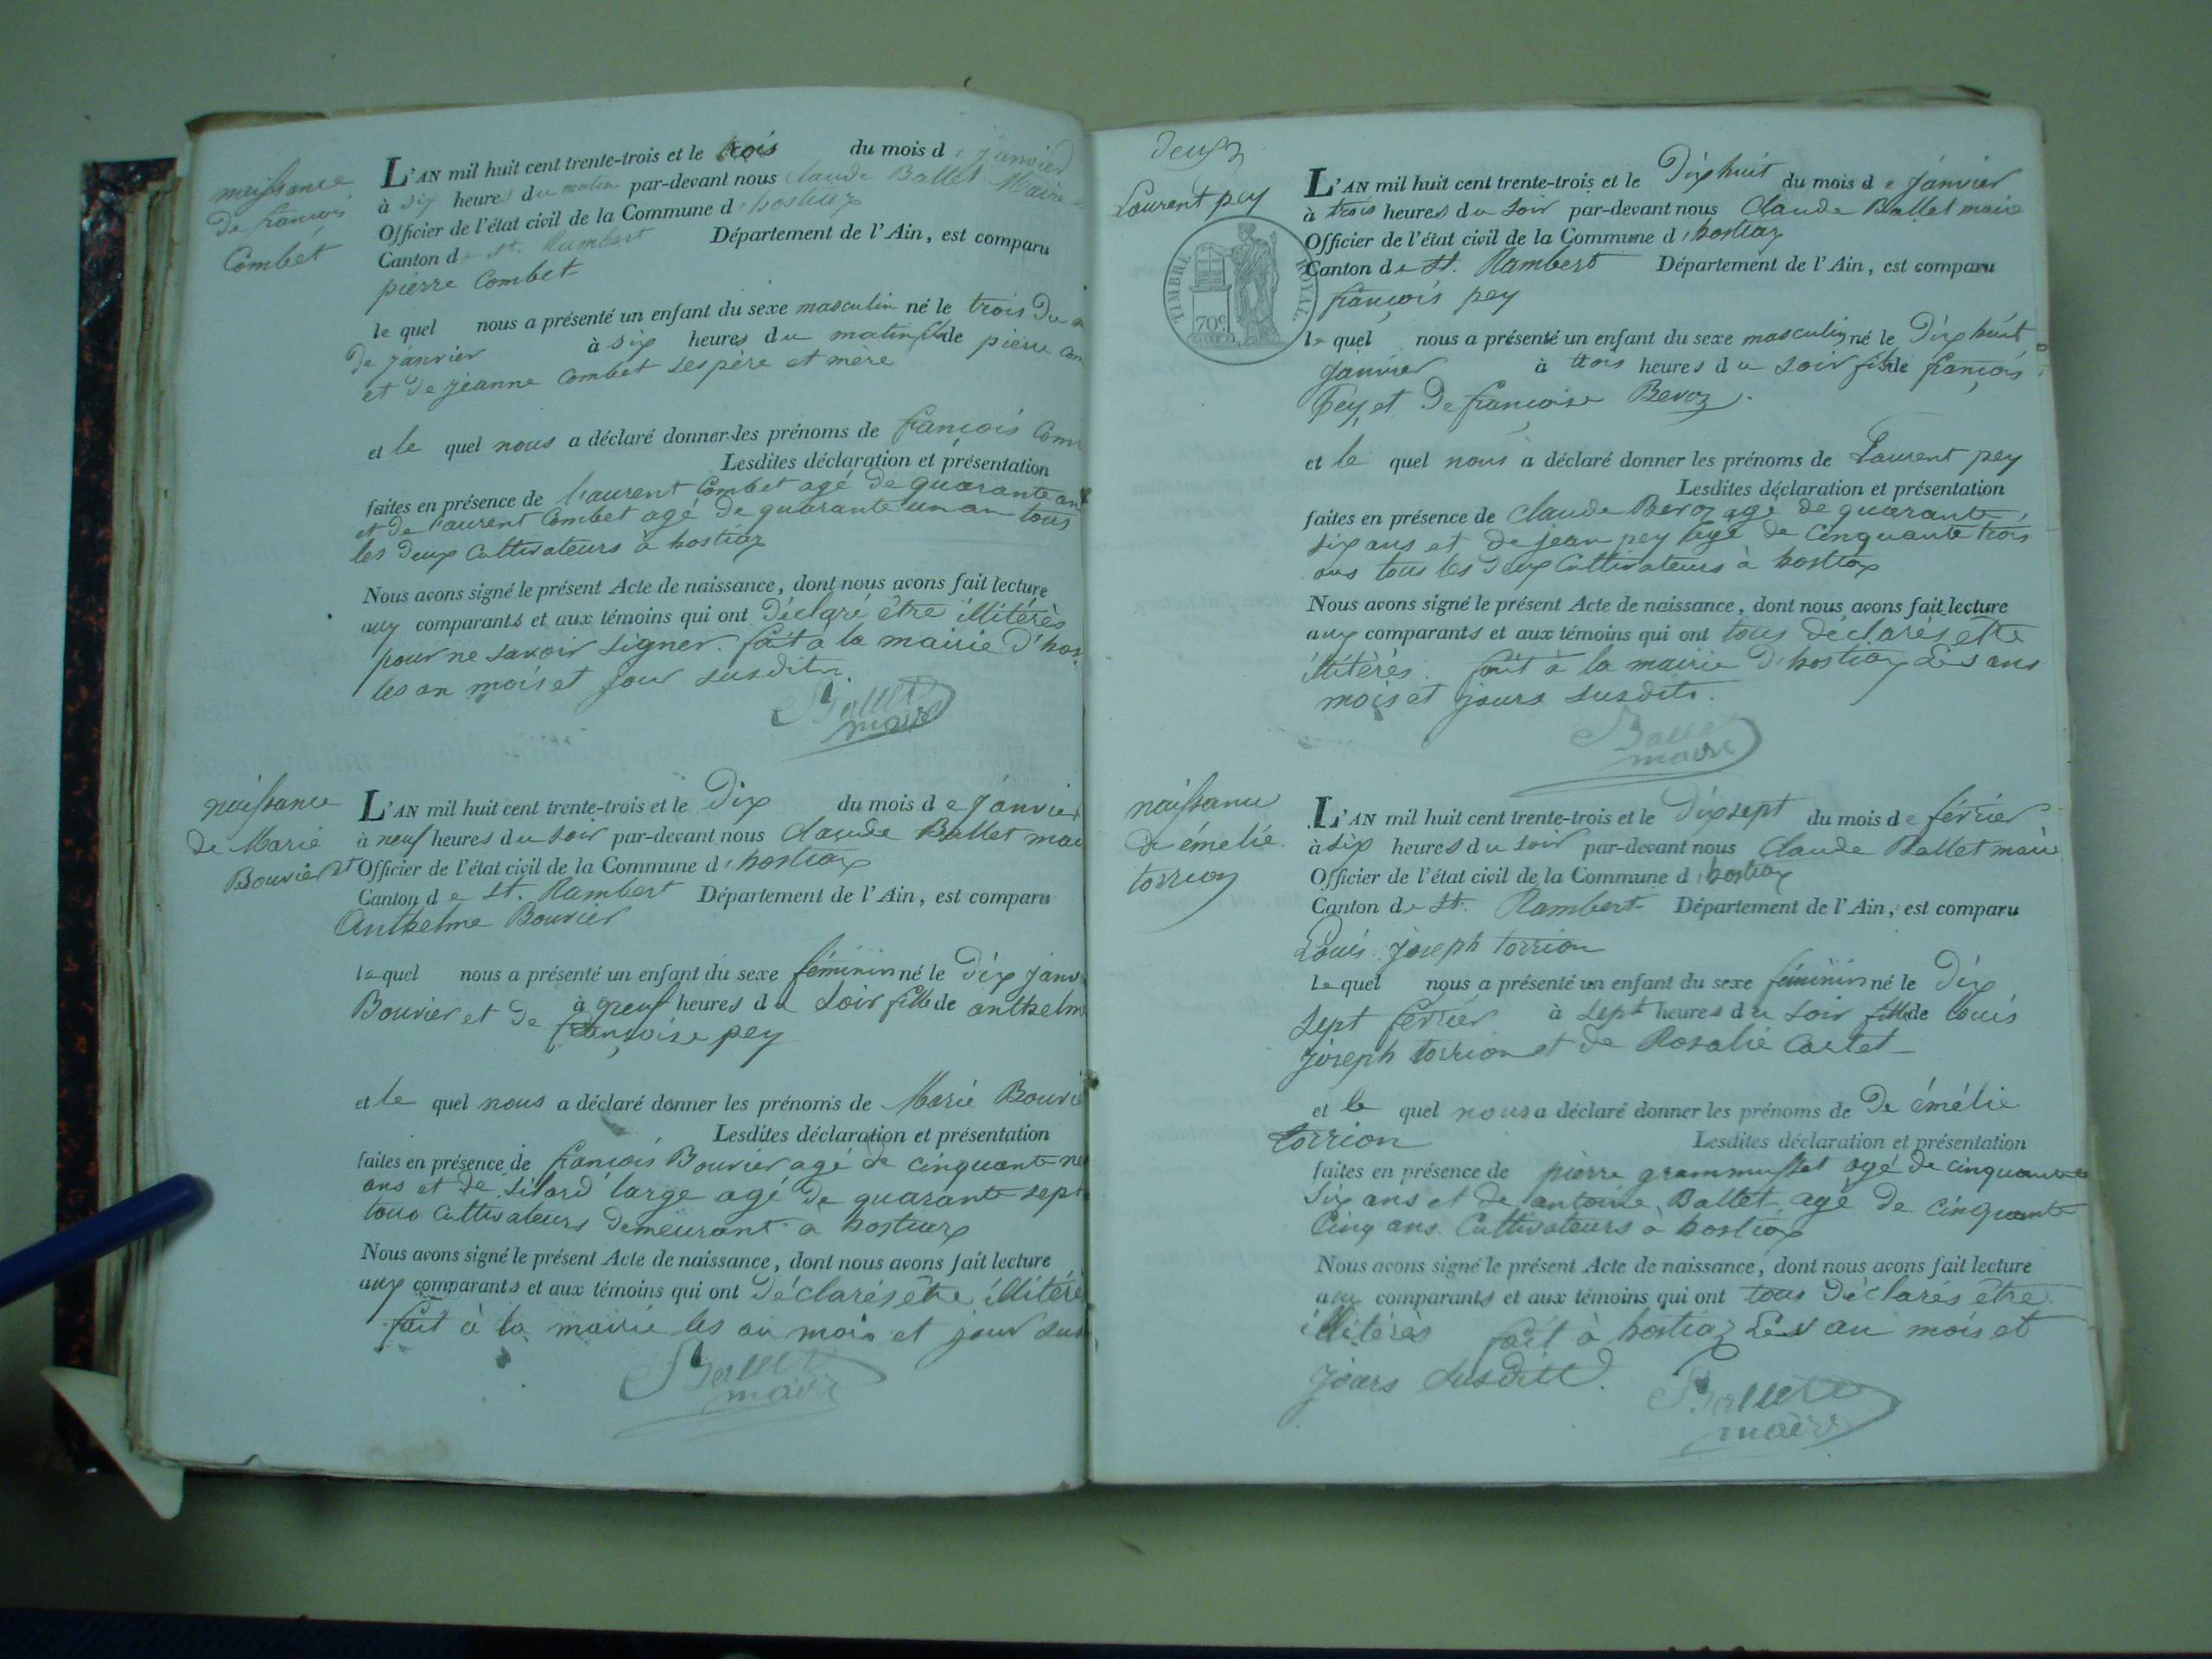 naissance
de françois
Combet
L'AN mil huit cent trente-trois et le trois du mois de janvier
à six heures du matin par-devant nous claude Ballet Maire
Officier de l'état civil de la Commune d'hostiaz
Canton de St. Rambert Département de l'Ain, est comparu
pierre Combet
le quel nous a présenté un enfant du sexe masculin né le trois du
de janvier à six heures du matin fils de pierre
et de jeanne Combet ses père et mère
et le quel nous a déclaré donner les prénoms de françois
Lesdites déclaration et présentation
faites en présence de laurent Combet agé de quarante
et de laurent Combet agé de quarante un an tous
les deux Cultivateurs à hostiaz
Nous avons signé le présent Acte de naissance, dont nous avons fait lecture
aux comparants et aux témoins qui ont déclaré être illitérès
pour ne savoir signer. fait a la mairie d'hos
les an mois et jour susdits.
Ballet
maire
naissance
de Marie
Bouvier
L'AN mil huit cent trente-trois et le Dix du mois de janvier
à neuf heures du soir par-devant nous claude Ballet mai
Officier de l'état civil de la Commune d'hostiaz
Canton de St. Rambert Département de l'Ain, est comparu
Anthelme Bouvier
lequel nous a présenté un enfant du sexe féminin né le Dix janv
à neuf heures du soir fille de anthelm
Bouvier et de françoise pey
et le quel nous a déclaré donner les prénoms de Marie Bouvi
Lesdites déclaration et présentation
faites en présence de françois Bouvier agé de cinquante
ans et de large agé de quarante sept
tous Cultivateurs demeurant a hostiaz
Nous avons signé le présent Acte de naissance, dont nous avons fait lecture
aux comparants et aux témoins qui ont déclarés être illitéré
fait à la mairie les an mois et jour sus
Ballet
maire
deux
Laurent pey
TIMBRE ROYAL
70c
L'AN mil huit cent trente-trois et le Dix huit du mois de janvier
à trois heures du soir par-devant nous Claude Ballet maire
Officier de l'état civil de la Commune d'hostiaz
Canton de St. Rambert Département de l'Ain, est comparu
françois pey
le quel nous a présenté un enfant du sexe masculin né le Dix huit
janvier à trois heures du soir fils de françois
Pey et de françoise Bevoz.
et le quel nous a déclaré donner les prénoms de Laurent pey
Lesdites déclaration et présentation
faites en présence de claude Bevoz agé de quarante
six ans et de jean pey agé de Cinquante trois
ans tous les deux Cultivateurs à hostiaz
Nous avons signé le présent Acte de naissance, dont nous avons fait lecture
aux comparants et aux témoins qui ont tous déclarés être
illitérès. fait à la mairie d'hostiaz Les ans
mois et jours susdits.
Ballet
maire
naissance
de émelie
torrion
L'AN mil huit cent trente-trois et le Dix sept du mois de février
à six heures du soir par-devant nous Claude Ballet maire
Officier de l'état civil de la Commune d'hostiaz
Canton de St. Rambert Département de l'Ain, est comparu
Louis joseph torrion
lequel nous a présenté un enfant du sexe féminin né le Dix
sept février à sept heures du soir fille de louis
joseph torrion et de Rosalie Carlet
et le quel nous a déclaré donner les prénoms de De émélie
torrion Lesdites déclaration et présentation
faites en présence de pierre grammusset agé de cinquante
six ans et de antoine Ballet, agé de cinquante
Cinq ans. Cultivateurs à hostiaz
Nous avons signé le présent Acte de naissance, dont nous avons fait lecture
aux comparants et aux témoins qui ont tous déclarés être
illitérès fait à hostiaz Les an mois et
jours susdits.
Ballet
maire